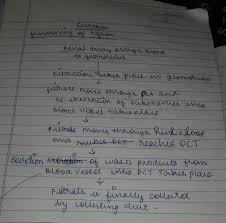 Secretion
functioning of Nephron
Renal artery brings blood
to glomerulus
↓
filtration takes place in glomerulus
↓
filtrate moves through PCT and
re absorption of substances into
blood vessel takes place
↓
Filtrate moves through Henle's loop
and reaches DCT
↓
Secretion of waste products from
blood vessel into DCT takes place
↓
Filtrate is finally collected
by collecting duct.